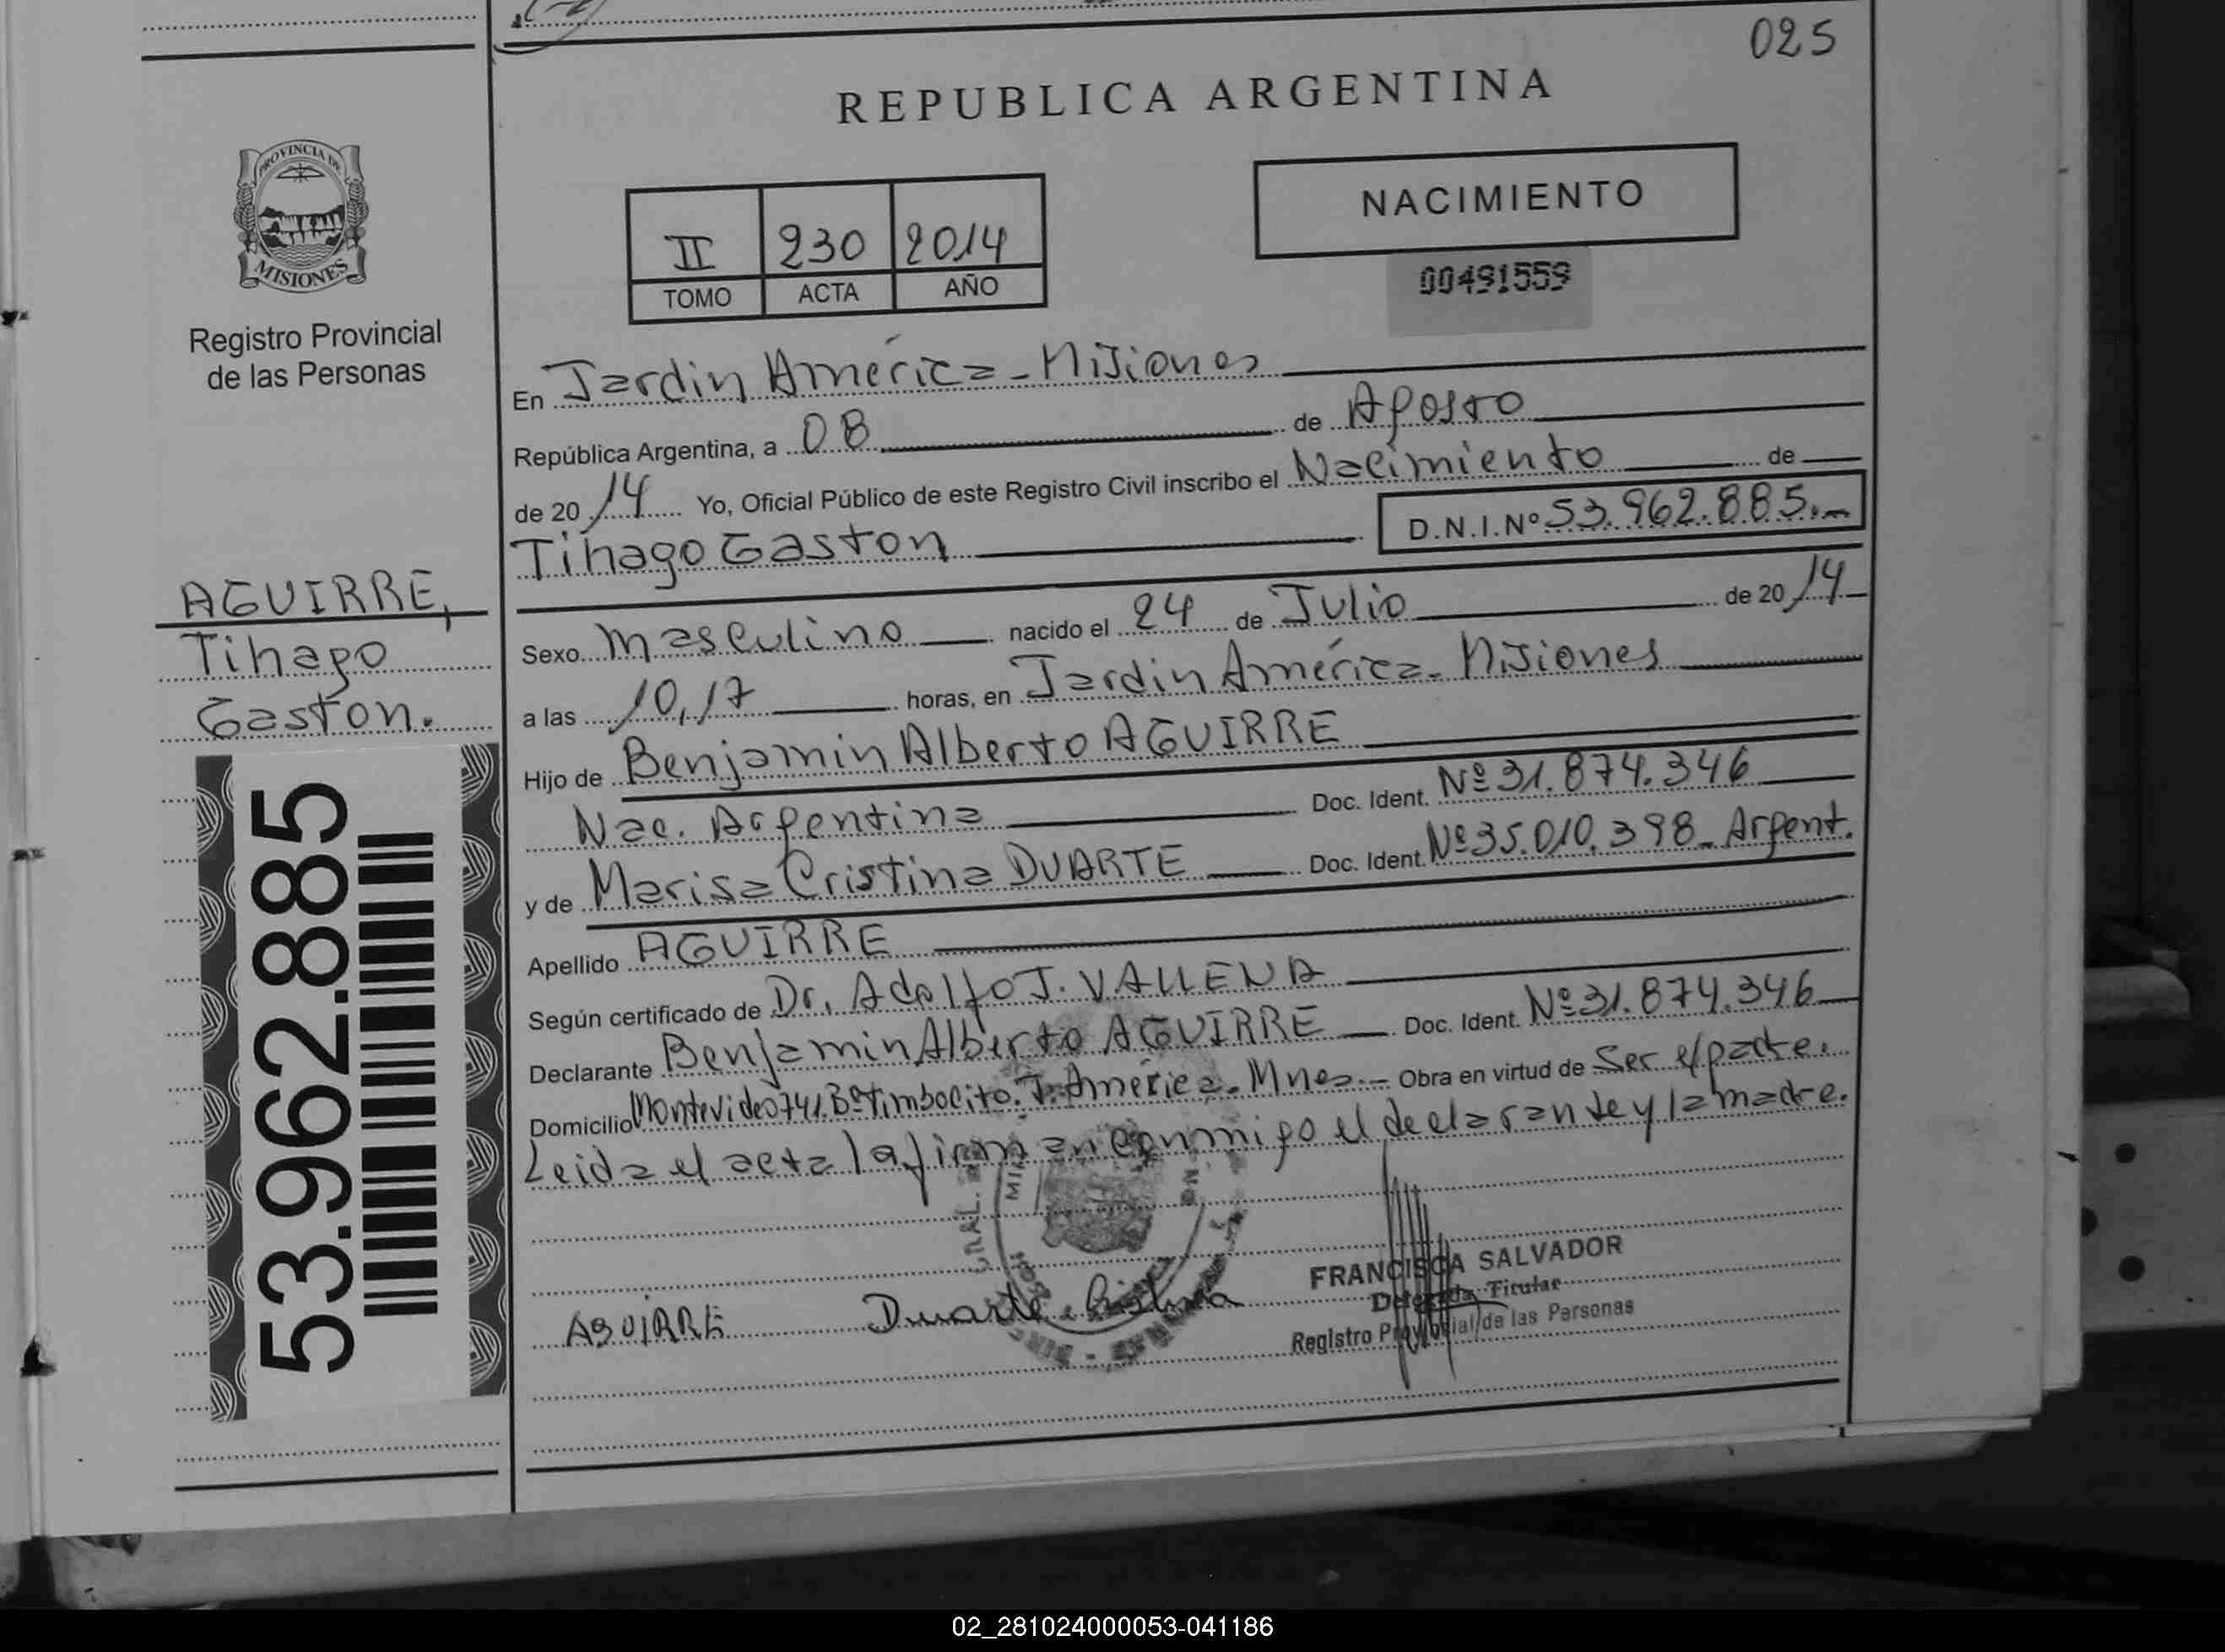 025
REPUBLICA ARGENTINA
PROVINCIA DE
MISIONES
Registro Provincial
de las Personas
II 230 2014
TOMO ACTA AÑO
NACIMIENTO
00491559
En Jardin América - Misiones
República Argentina, a 08 de Agosto
de 2014 Yo, Oficial Público de este Registro Civil inscribo el Nacimiento de
Tihago Gaston D.N.I.Nº 53.962.885.-
AGUIRRE,
Tihago
Gaston.
53.962.885
Sexo Masculino nacido el 24 de Julio de 2014
a las 10,17 horas, en Jardin América - Misiones
Hijo de Benjamin Alberto AGUIRRE
Nac. Argentina Doc. Ident. Nº 31.874.346
y de Marisa Cristina DUARTE Doc. Ident. Nº 35.010.398 - Argent.
Apellido AGUIRRE
Según certificado de Dr. Adolfo J. VALLENA
Declarante Benjamin Alberto AGUIRRE Doc. Ident. Nº 31.874.346
Domicilio Montevideo 741. Bº Timbocito. J. América - Mnes - Obra en virtud de Ser el padre.
Leida el acta la firman conmigo el declarante y la madre.
AGUIRRE Duarte Cristina
FRANCISCA SALVADOR
Delegada Titular
Registro Provincial de las Personas
02_281024000053-041186